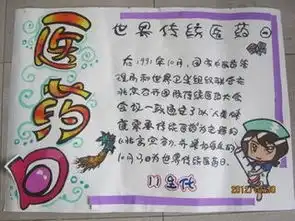 医药
世界传统医药日
在1991年10月,国家中医药管
理局和世界卫生组织联合在
北京召开国际传统医药大会
会议一致通过了以“人类健
康需要传统医药”为主题的
《北京宣言》,并
10月22日为世界传统医药日.